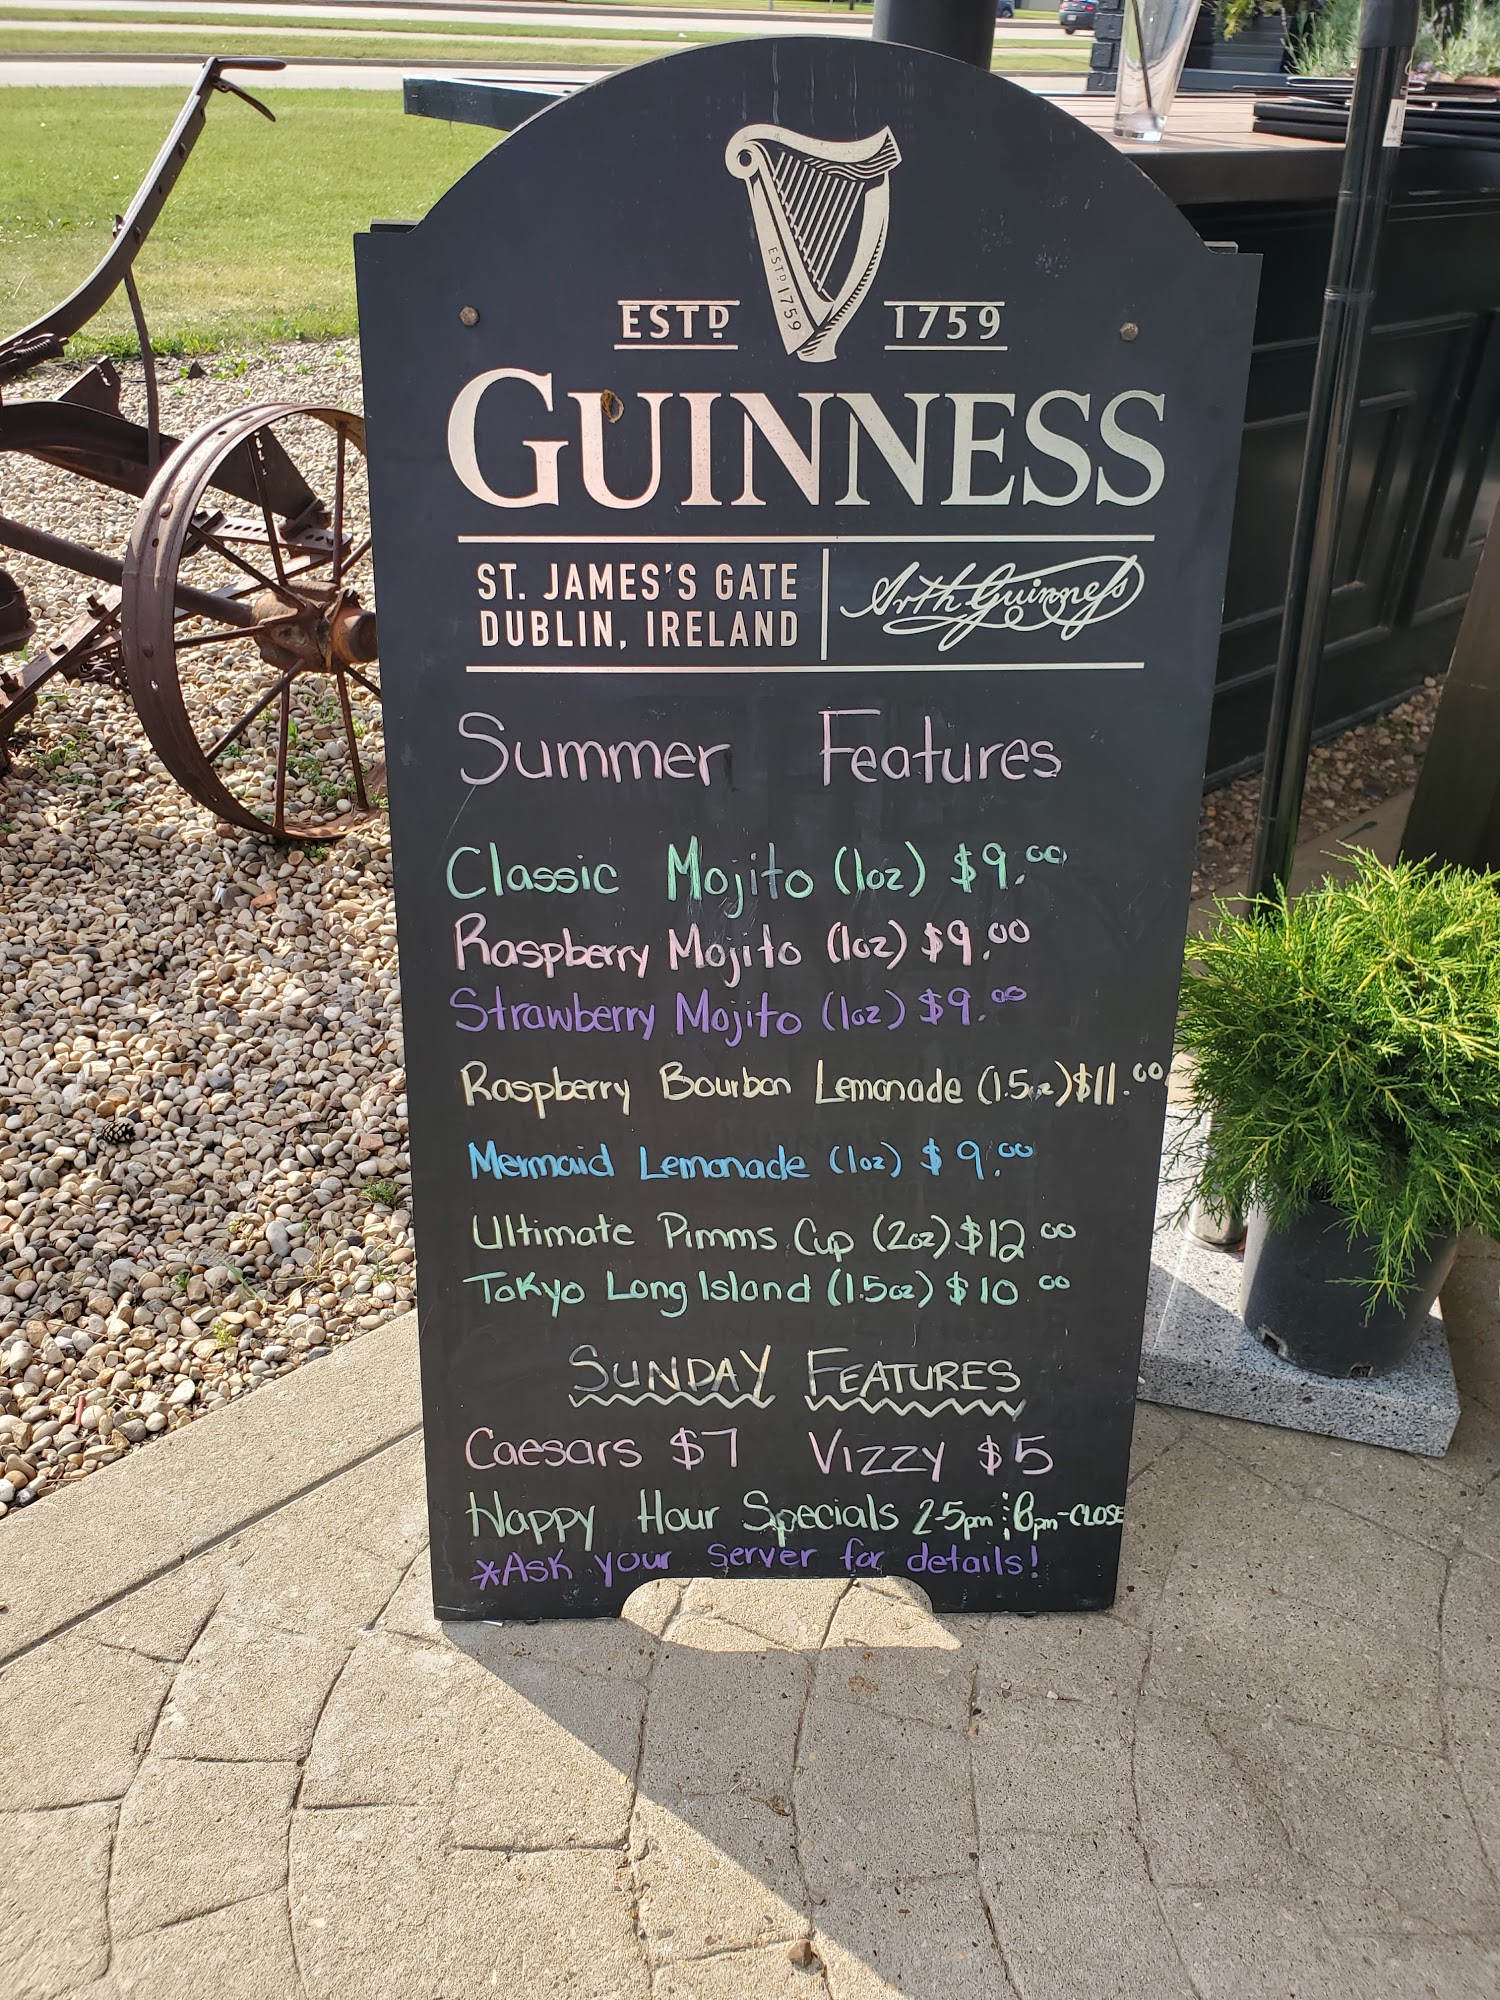 ESTD 1759
ESTD 1759
GUINNESS
ST. JAMES'S GATE
DUBLIN, IRELAND
Arth Guinness
Summer Features
Classic Mojito (1oz) $9.00
Raspberry Mojito (1oz) $9.00
Strawberry Mojito (1oz) $9.00
Raspberry Bourbon Lemonade (1.5oz) $11.00
Mermaid Lemonade (1oz) $9.00
Ultimate Pimms Cup (2oz) $12 00
Tokyo Long Island (1.5oz) $10 00
SUNDAY FEATURES
Caesars $7 Vizzy $5
Happy Hour Specials 2-5pm 8pm-CLOSE
*Ask your server for details!